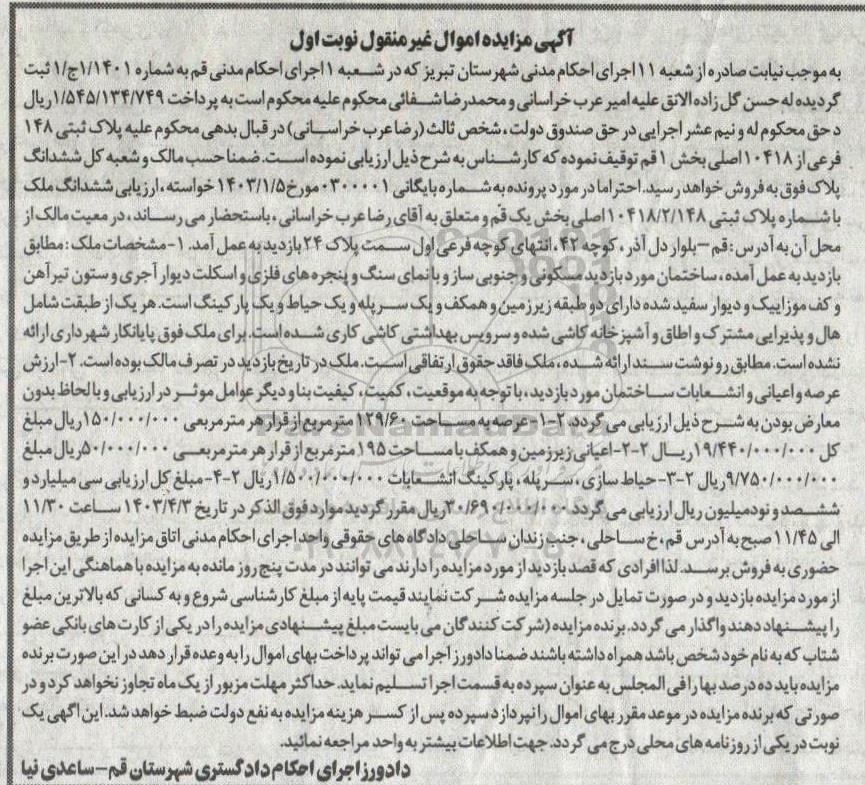 آگهی مزایده اموال غیر منقول نوبت اول
به موجب نیابت صادره از شعبه ۱۱ اجرای احکام مدنی شهرستان تبریز که در شعبه ۱ اجرای احکام مدنی قم به شماره ۱/۱۴۰۱ج/۱ ثبت
گردیده له حسن گل زاده الانق علیه امیر عرب خراسانی و محمدرضا شفائی محکوم علیه محکوم است به پرداخت ۱/۵۴۵/۱۳۴/۷۴۹ریال
د حق محکوم له و نیم عشر اجرایی در حق صندوق دولت، شخص ثالث (رضا عرب خراسانی) در قبال بدهی محکوم علیه پلاک ثبتی ۱۴۸
فرعی از ۱۰۴۱۸ اصلی بخش ۱ قم توقیف نموده که کارشناس به شرح ذیل ارزیابی نموده است. ضمنا حسب مالک و شعبه کل ششدانگ
پلاک فوق به فروش خواهد رسید. احتراما در مورد پرونده به شماره بایگانی ۰۳۰۰۰۰۱ مورخ ۱۴۰۳/۱/۵ خواسته، ارزیابی ششدانگ ملک
با شماره پلاک ثبتی ۱۰۴۱۸/۲/۱۴۸ اصلی بخش یک قم و متعلق به آقای رضا عرب خراسانی، باستحضار می رساند، در معیت مالک از
محل آن به آدرس: قم –بلوار دل آذر، کوچه ۴۲، انتهای کوچه فرعی اول سمت پلاک ۲۴ بازدید به عمل آمد. ۱-مشخصات ملک: مطابق
بازدید به عمل آمده، ساختمان مورد بازدید مسکونی و جنوبی ساز و با نمای سنگ و پنجره های فلزی و اسکلت دیوار آجری و ستون تیرآهن
و کف موزاییک و دیوار سفید شده دارای دو طبقه زیرزمین و همکف و یک سرپله و یک حیاط و یک پارکینگ است. هر یک از طبقت شامل
هال و پذیرایی مشترک و اطاق و آشپزخانه کاشی شده و سرویس بهداشتی کاشی کاری شده است. برای ملک فوق پایانکار شهرداری ارائه
نشده است. مطابق رونوشت سند ارائه شده، ملک فاقد حقوق ارتفاقی است. ملک در تاریخ بازدید در تصرف مالک بوده است. ۲-ارزش
عرصه و اعیانی و انشعابات ساختمان مورد بازدید، با توجه به موقعیت، کمیت، کیفیت بنا و دیگر عوامل موثر در ارزیابی و با لحاظ بدون
معارض بودن به شرح ذیل ارزیابی می گردد. ۲-۱-عرصه به مساحت ۱۲۹/۶۰ مترمربع از قرار هر مترمربعی ۱۵۰/۰۰۰/۰۰۰ریال مبلغ
کل ۱۹/۴۴۰/۰۰۰/۰۰۰ریال ۲-۲-اعیانی زیرزمین و همکف با مساحت ۱۹۵ مترمربع از قرار هر مترمربعی ۵۰/۰۰۰/۰۰۰ریال مبلغ
۹/۷۵۰/۰۰۰/۰۰۰ریال ۲-۳-حیاط سازی، سرپله، پارکینگ انشعابات ۱/۵۰۰/۰۰۰/۰۰۰ریال ۲-۴-مبلغ کل ارزیابی سی میلیارد و
ششصد و نود میلیون ریال ارزیابی می گردد ۳۰/۶۹۰/۰۰۰/۰۰۰ریال مقرر گردید موارد فوق الذکر در تاریخ ۱۴۰۳/۴/۳ ساعت ۱۱/۳۰
الی ۱۱/۴۵ صبح به آدرس قم، خ ساحلی، جنب زندان ساحلی دادگاه های حقوقی واحد اجرای احکام مدنی اتاق مزایده از طریق مزایده
حضوری به فروش برسد. لذا افرادی که قصد بازدید از مورد مزایده را دارند می توانند در مدت پنج روز مانده به مزایده با هماهنگی این اجرا
از مورد مزایده بازدید و در صورت تمایل در جلسه مزایده شرکت نمایند قیمت پایه از مبلغ کارشناسی شروع و به کسانی که بالاترین مبلغ
را پیشنهاد دهند واگذار می گردد. برنده مزایده (شرکت کنندگان می بایست مبلغ پیشنهادی مزایده را در یکی از کارت های بانکی عضو
شتاب که به نام خود شخص باشد همراه داشته باشند ضمنا دادورز اجرا می تواند پرداخت بهای اموال را به وعده قرار دهد در این صورت برنده
مزایده باید ده درصد بها را فی المجلس به عنوان سپرده به قسمت اجرا تسلیم نماید. حداکثر مهلت مزبور از یک ماه تجاوز نخواهد کرد و در
صورتی که برنده مزایده در موعد مقرر بهای اموال را نپردازد سپرده پس از کسر هزینه مزایده به نفع دولت ضبط خواهد شد. این اگهی یک
نوبت در یکی از روزنامه های محلی درج می گردد. جهت اطلاعات بیشتر به واحد مراجعه نمائید.
دادورز اجرای احکام دادگستری شهرستان قم-ساعدی نیا